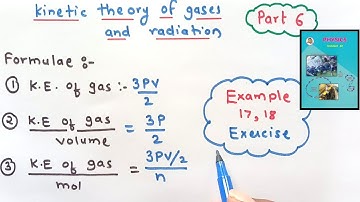 kinetic theory of gases
and radiation
Part 6
Formulae :-
① K.E. of gas :- 3PV/2
② K.E of gas / volume = 3P/2
③ K.E of gas / mol = 3PV/2 / n
Example
17, 18
Exercise
PHYSICS